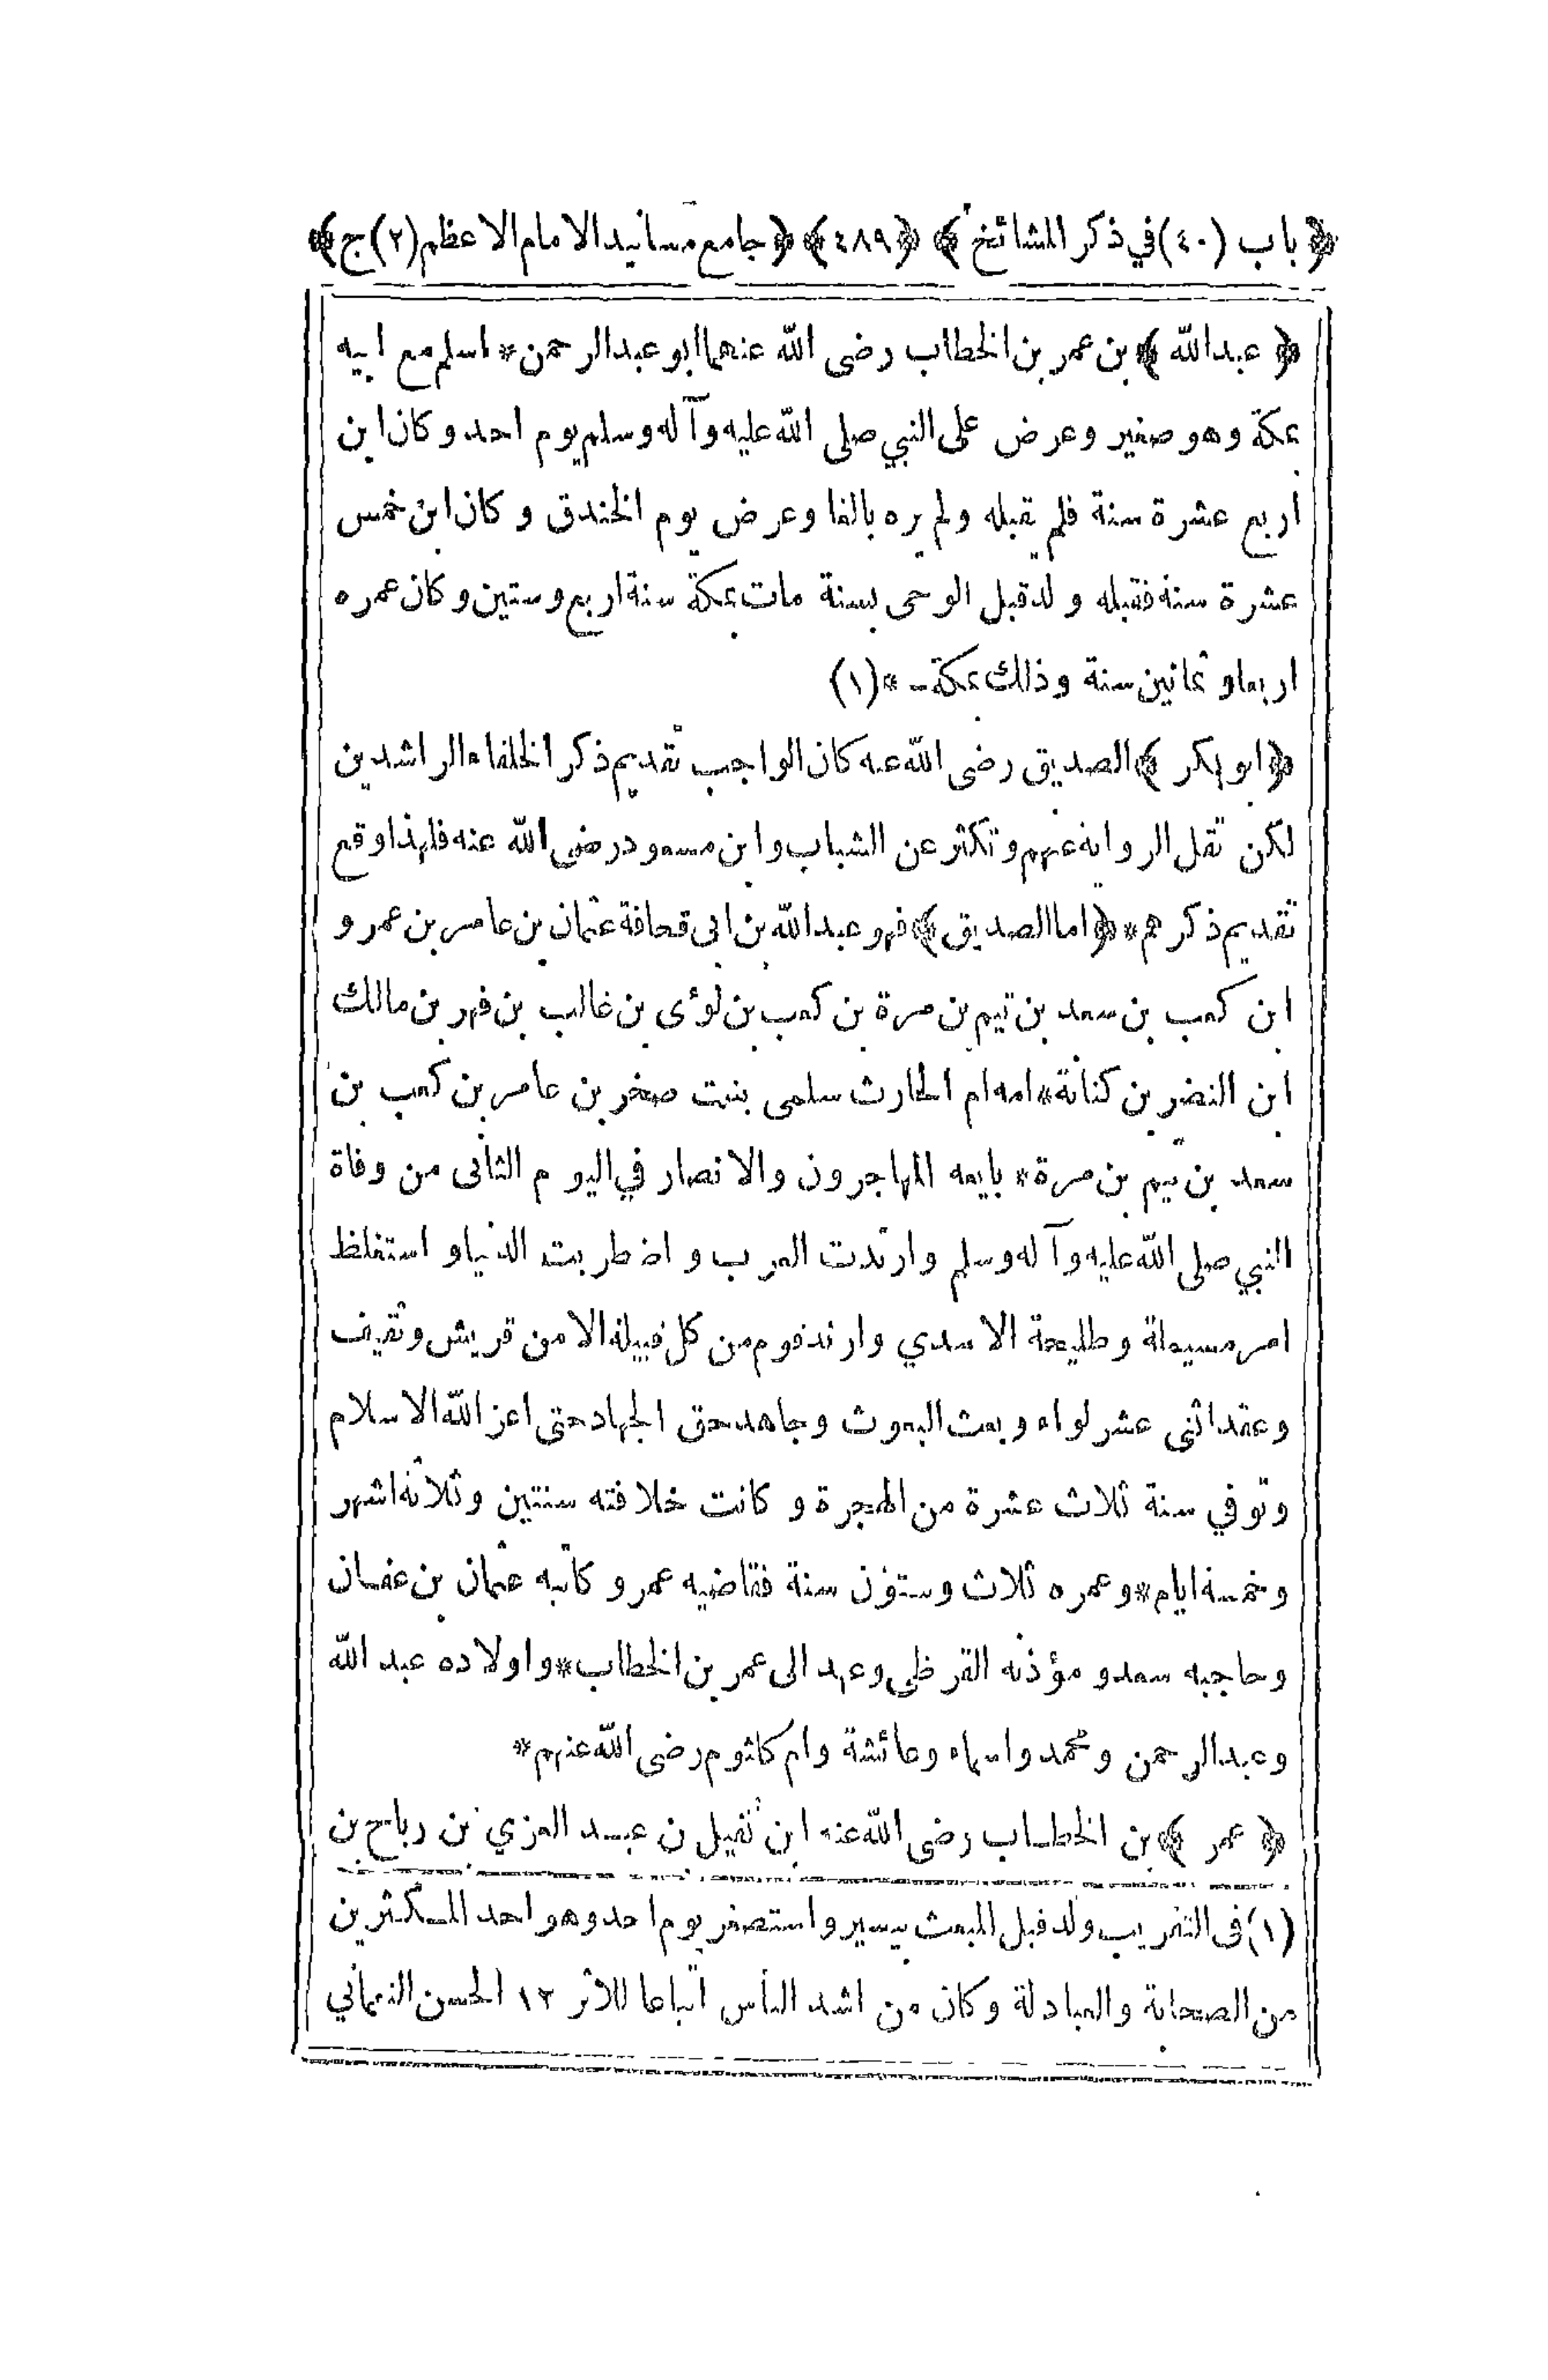 ﴿باب (٤٠) في ذكر المشائخ﴾ ﴿٤٨٩﴾ ﴿جامع مسانيد الامام الاعظم (٢) ج﴾
﴿عبد الله﴾ بن عمر بن الخطاب رضى الله عنهما ابو عبد الرحمن * اسلم مع ابيه
بمكة وهو صغير وعرض على النبي صلى الله عليه وآله وسلم يوم احد و كان ابن
اربع عشرة سنة فلم يقبله ولم يره بالغا وعرض يوم الخندق و كان ابن خمس
عشرة سنة فقبله و لد قبل الوحى بسنة مات بمكة سنة اربع وستين و كان عمره
اربعا و ثمانين سنة وذلك بمكة ـ * (١)
﴿ابو بكر﴾ الصديق رضى الله عنه كان الواجب تقديم ذكر الخلفاء الراشدين
لكن تقل الرواية عنهم وتكثر عن الشباب و ابن مسعود رضى الله عنه فلهذا وقع
تقديم ذكرهم * ﴿اما الصديق﴾ فهو عبد الله بن ابى قحافة عثمان بن عامر بن عمرو
ابن كعب بن سعد بن تيم بن مرة بن كعب بن لوءى بن غالب بن فهر بن مالك
ابن النضر بن كنانة * امه ام الحارث سلمى بنت صخر بن عامر بن كعب بن
سعد بن تيم بن مرة * بايعه المهاجرون والانصار في اليوم الثانى من وفاة
النبي صلى الله عليه وآله وسلم وارتدت العرب و اضطربت الدنيا و استغلظ
امر مسيلمة وطليحة الاسدي وارتد قوم من كل قبيلة الا من قريش وثقيف
وعقد اثنى عشر لواء و بعث البعوث وجاهد حق الجهاد حتى اعز الله الاسلام
وتوفي سنة ثلاث عشرة من الهجرة و كانت خلافته سنتين وثلاثة اشهر
وخمسة ايام * وعمره ثلاث وستون سنة فقاضيه عمر و كاتبه عثمان بن عفان
وحاجبه سعد و مؤذنه القرظى وعهد الى عمر بن الخطاب * واولاده عبد الله
وعبد الرحمن ومحمد واسماء وعائشة وام كلثوم رضى الله عنهم *
﴿عمر﴾ بن الخطاب رضى الله عنه ابن نفيل بن عبد العزي بن رباح بن
(١) فى التقريب ولد قبل المبعث بيسير و استصغر يوم احد وهو احد المكثرين
من الصحابة والعبادلة وكان من اشد الناس اتباعا للاثر ١٢ الحسن النعماني